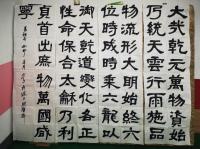 大哉乾元萬物資始
乃統天雲行雨施品
物流形大明始終六
位時成時乘六龍以
御天乾道變化各正
性命保合太龢乃利
貞首出庶物萬國咸
寧